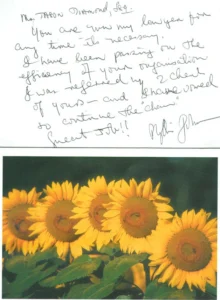 You are now my lawyer for
any time it is necessary.
I have been passing on the
efficiency of your organisation
I was referred by 2 clients
of yours - and I have vowed
to continue the "chain"
Job!!